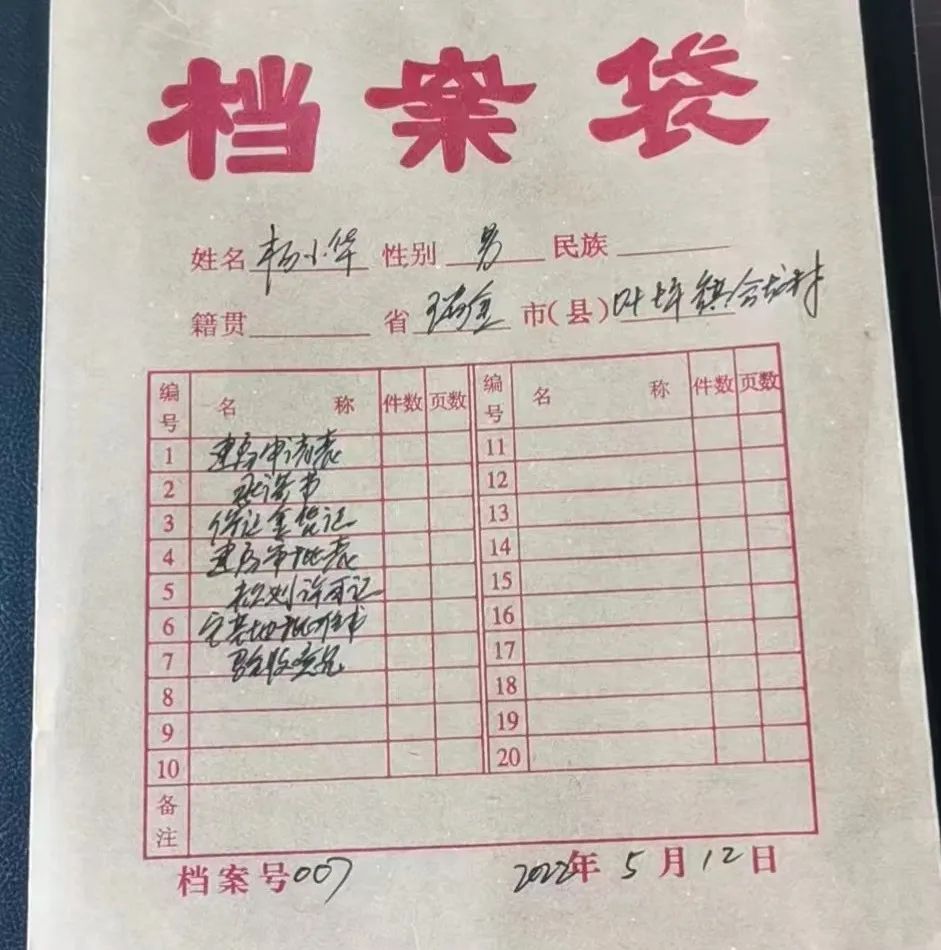 档案袋
姓名 杨小华 性别 男 民族
籍贯 省 瑞金 市(县) 叶坪镇合龙村
编号 名称 件数 页数 编号 名称 件数 页数
1 建房申请表 11
2 承诺书 12
3 保证金登记 13
4 建房审批表 14
5 规划许可证 15
6 宅基地批准书 16
7 验收意见 17
8 18
9 19
10 20
备注
档案号007 2022年5月12日